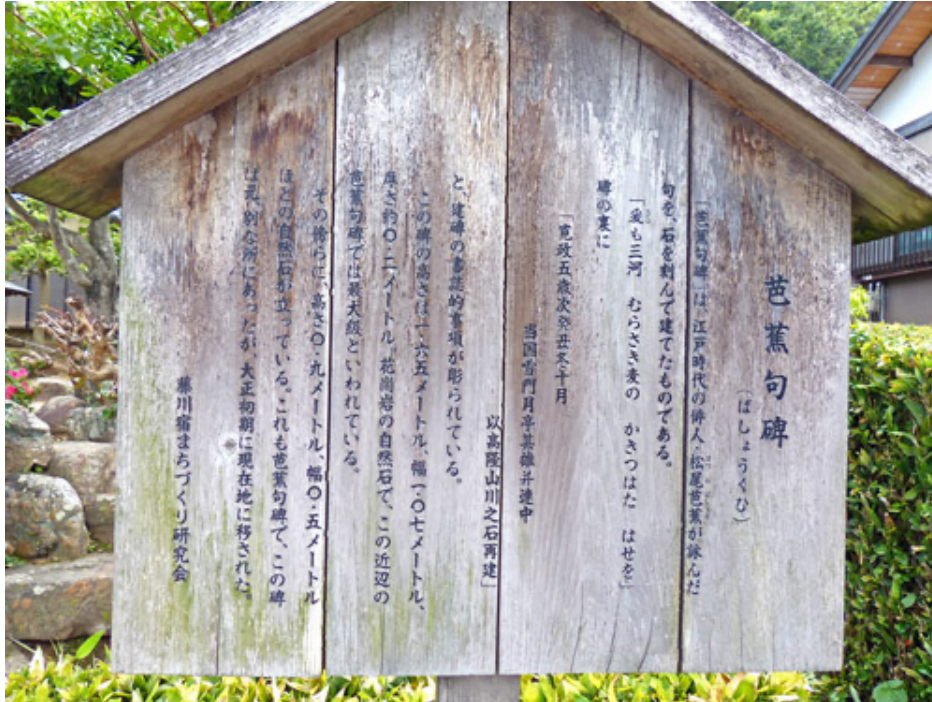 芭蕉句碑
(ばしょうくひ)
「芭蕉句碑」は、江戸時代の俳人・松尾芭蕉が詠んだ
句を、石を刻んで建てたものである。
「爰も三河 むらさき麦の かきつはた はせを」
碑の裏に
「寛政五歳次癸丑冬十月
当国雪門月亭其雄并連中
以高隆山川之石再建」
と、建碑の書誌的事項が彫られている。
この碑の高さは一・六五メートル、幅一・〇七メートル、
厚さ約〇・二メートル。花崗岩の自然石で、この近辺の
芭蕉句碑では最大級といわれている。
その傍らに、高さ〇・九メートル、幅〇・五メートル
ほどの自然石が立っている。これも芭蕉句碑で、この碑
は元、別な所にあったが、大正初期に現在地に移された。
藤川宿まちづくり研究会